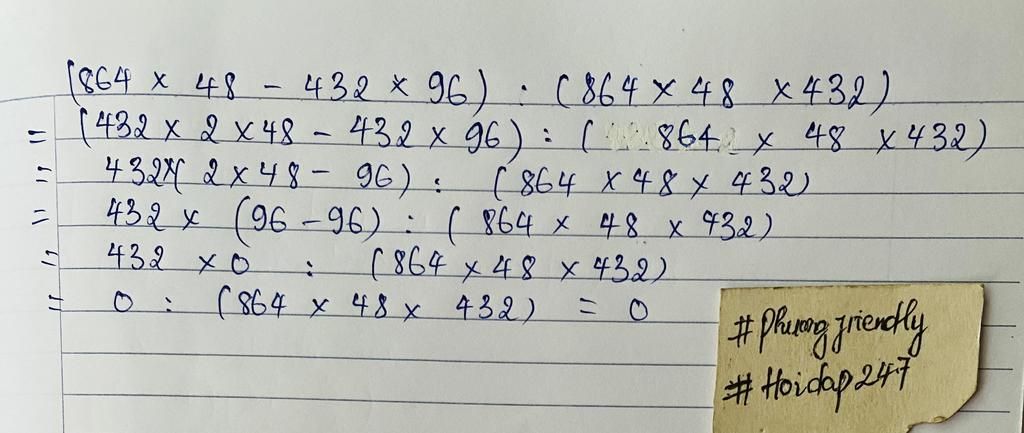 (864 × 48 - 432 × 96) : (864 × 48 × 432)
= (432 × 2 × 48 - 432 × 96) : ( 864 × 48 × 432)
= 432 × ( 2 × 48 - 96) : (864 × 48 × 432)
= 432 × (96 - 96) : ( 864 × 48 × 432)
= 432 × 0 : (864 × 48 × 432)
= 0 : (864 × 48 × 432) = 0
# Phuong friendly
# Hoidap247